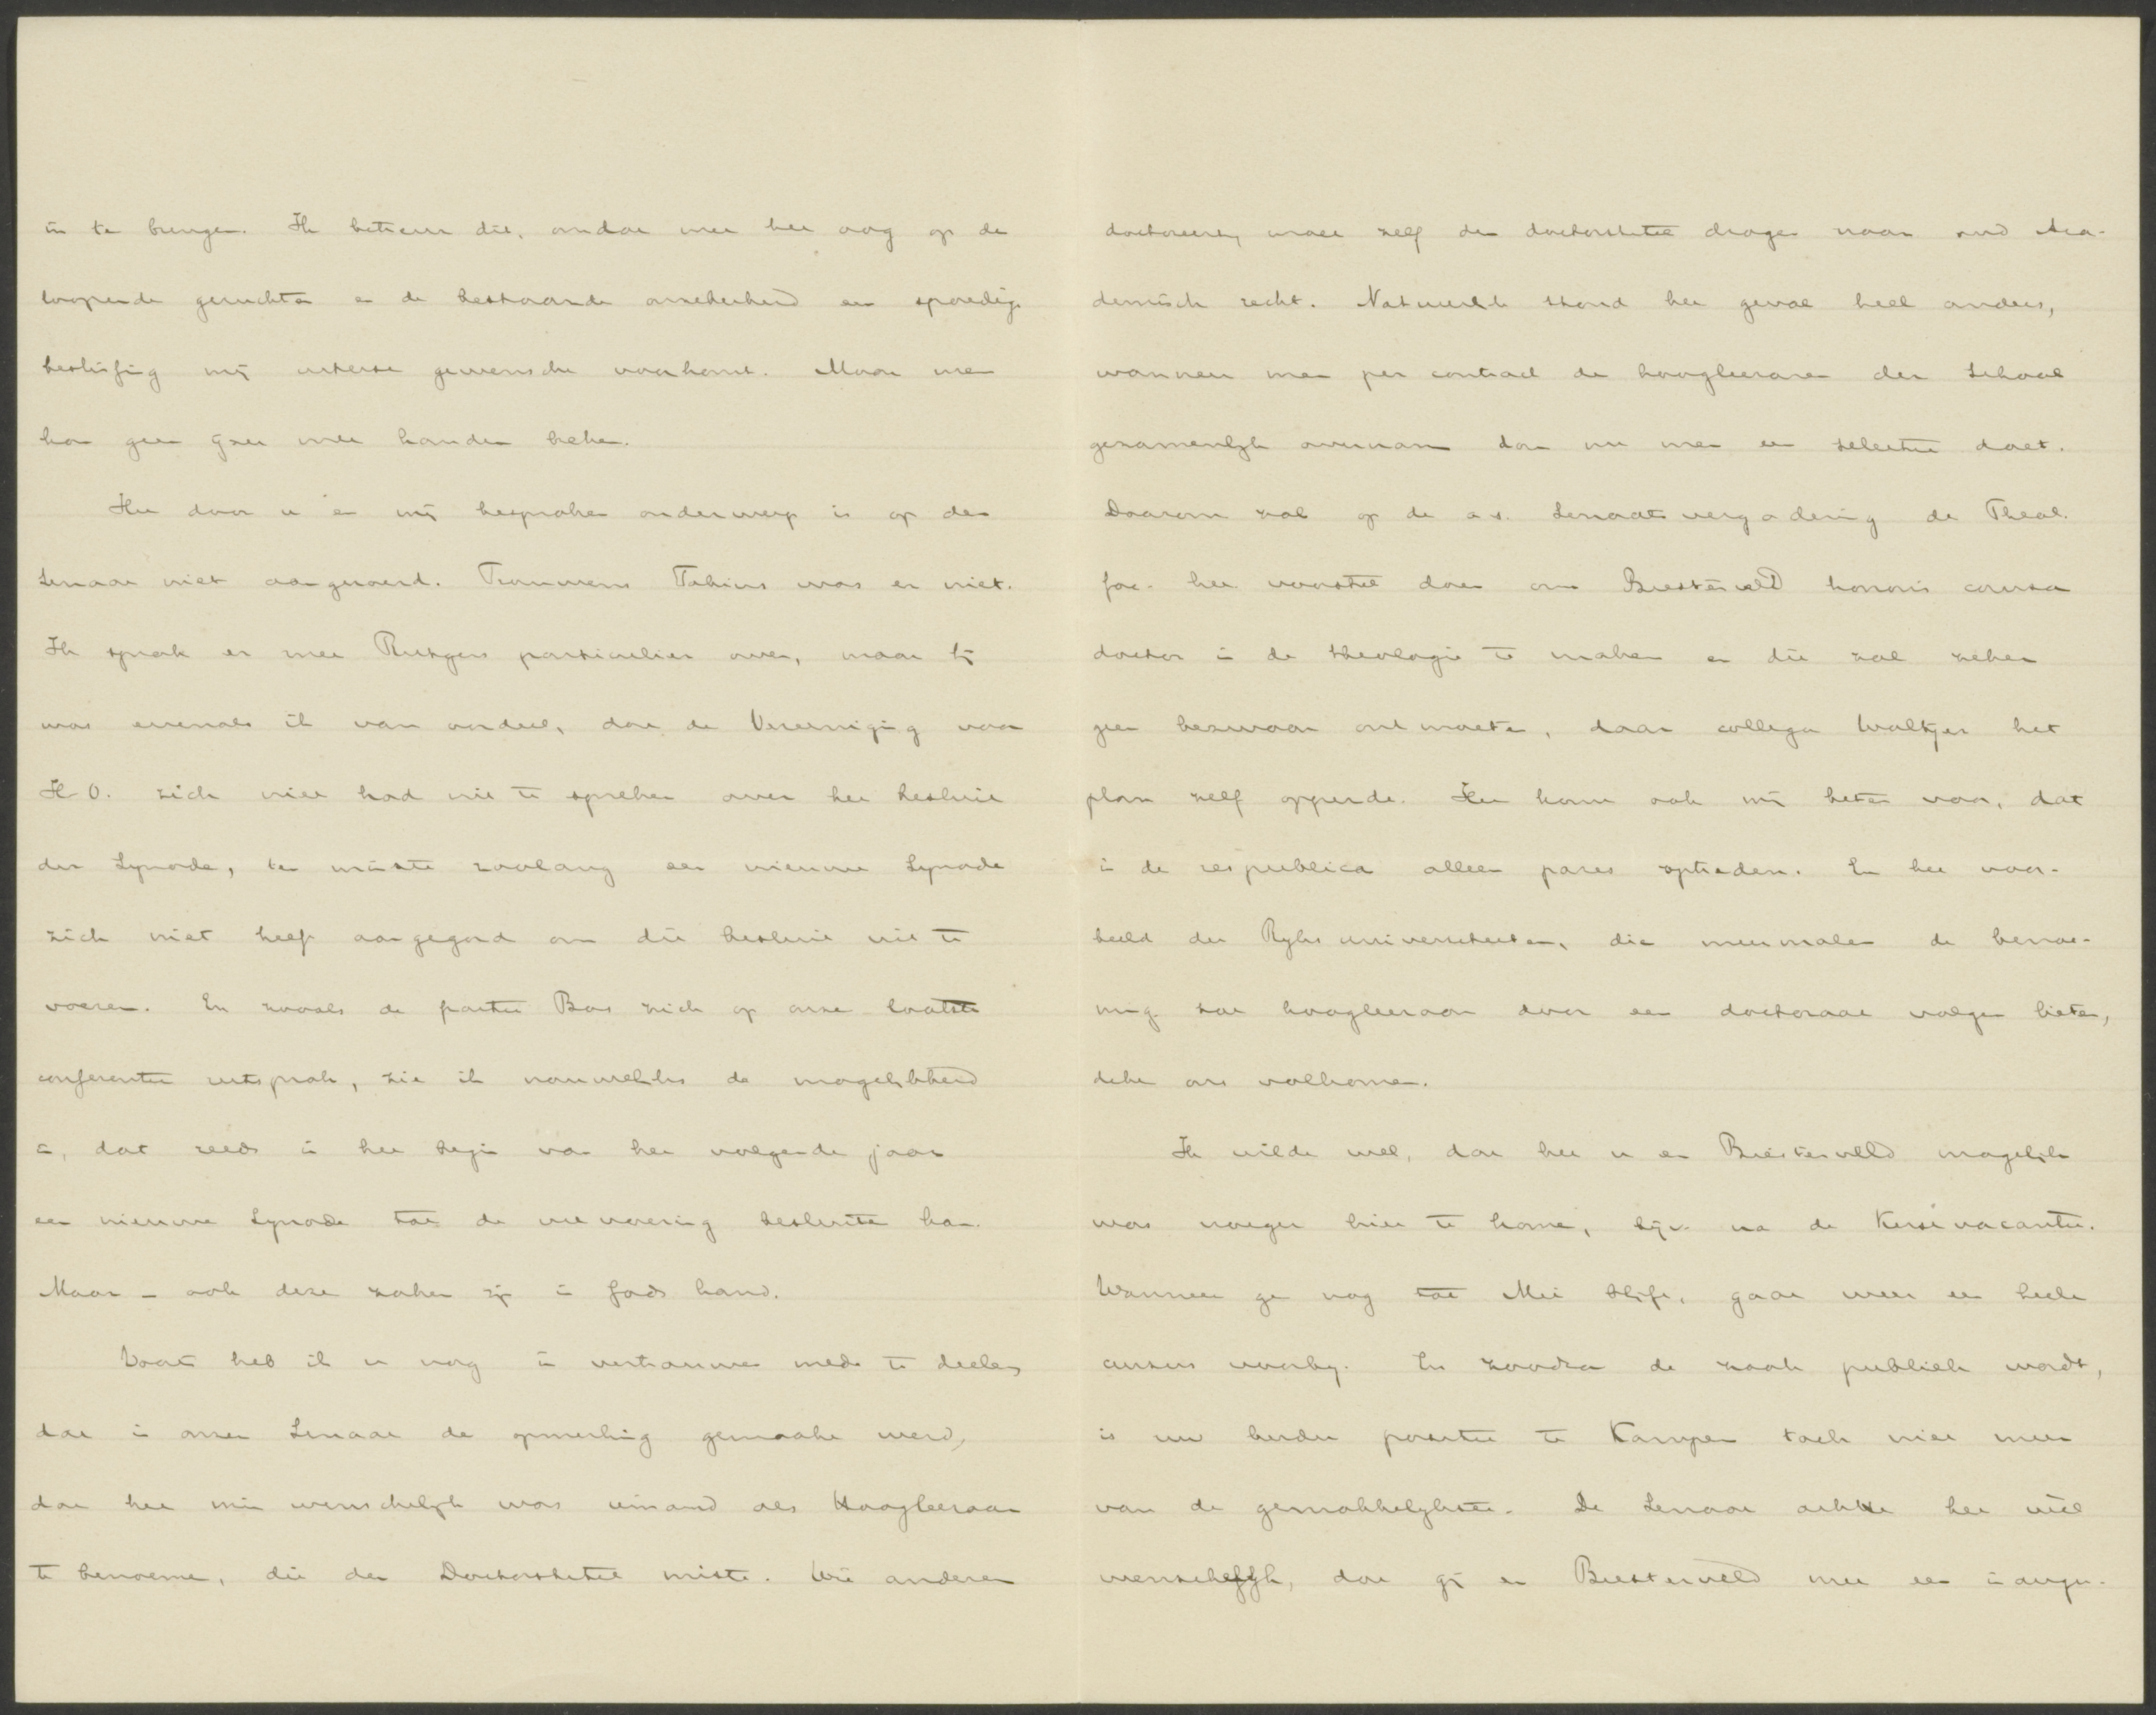 in te brengen. Ik betreur dit, omdat met het oog op de
loopende geruchten en de bestaande onzekerheid een spoedige
beslissing mij uiterst gewenscht voorkomt. Maar men
kan geen ijzer met handen breken.
Het door u en mij besproken onderwerp is op den
Senaat niet aangeroerd. Trouwens Fabius was er niet.
Ik sprak er met Rutgers particulier over, maar hij
was evenals ik van oordeel, dat de Vereeniging voor
H.O. zich niet had uit te spreken over het besluit
der Synode, ten minste zoolang een nieuwe Synode
zich niet heeft aangegord om dit besluit uit te
voeren. En zooals de partij Bos zich op onze laatste
conferentie uitsprak, zie ik nauwelijks de mogelijkheid
in, dat reeds in het begin van het volgende jaar
een nieuwe Synode tot de uitvoering besluiten kan.
Maar – ook deze zaken zijn in Gods hand.
Voorts heb ik u nog in vertrouwen mede te deelen
dat in onzen Senaat de opmerking gemaakt werd,
dat het min wenschelijk was iemand als Hoogleeraar
te benoemen, die den Doctorstitel miste. Wie anderen
doctoreert, moet zelf den doctorstitel dragen naar oud Aca-
demisch recht. Natuurlijk stond het geval heel anders,
wanneer men per contract de hoogleeraren der School
gezamenlijk overnam dan nu men een selectie doet.
Daarom zal op de a.s. Senaatsvergadering de Theol.
fac. het voorstel doen om Biesterveld honoris causa
doctor in de theologie te maken en dit zal zeker
geen bezwaar ontmoeten, daar collega Woltjer het
plan zelf opperde. Het komt ook mij beter voor, dat
in de respublica alleen pares optreden. En het voor-
beeld der Rijksuniversiteiten, die meermalen de benoe-
ming tot hoogleeraar door een doctoraat volgen lieten,
dekt ons volkomen.
Ik wilde wel, dat het u en Biesterveld mogelijk
was vroeger hier te komen, bijv. na de Kerstvacantie.
Wanneer ge nog tot Mei blijft, gaat weer een heele
cursus voorbij. En zoodra de zaak publiek wordt,
is uw beider positie te Kampen toch niet meer
van de gemakkelijkste. De Senaat achtte het niet
wenschelijk, dat gij en Biesterveld met een inaugu-